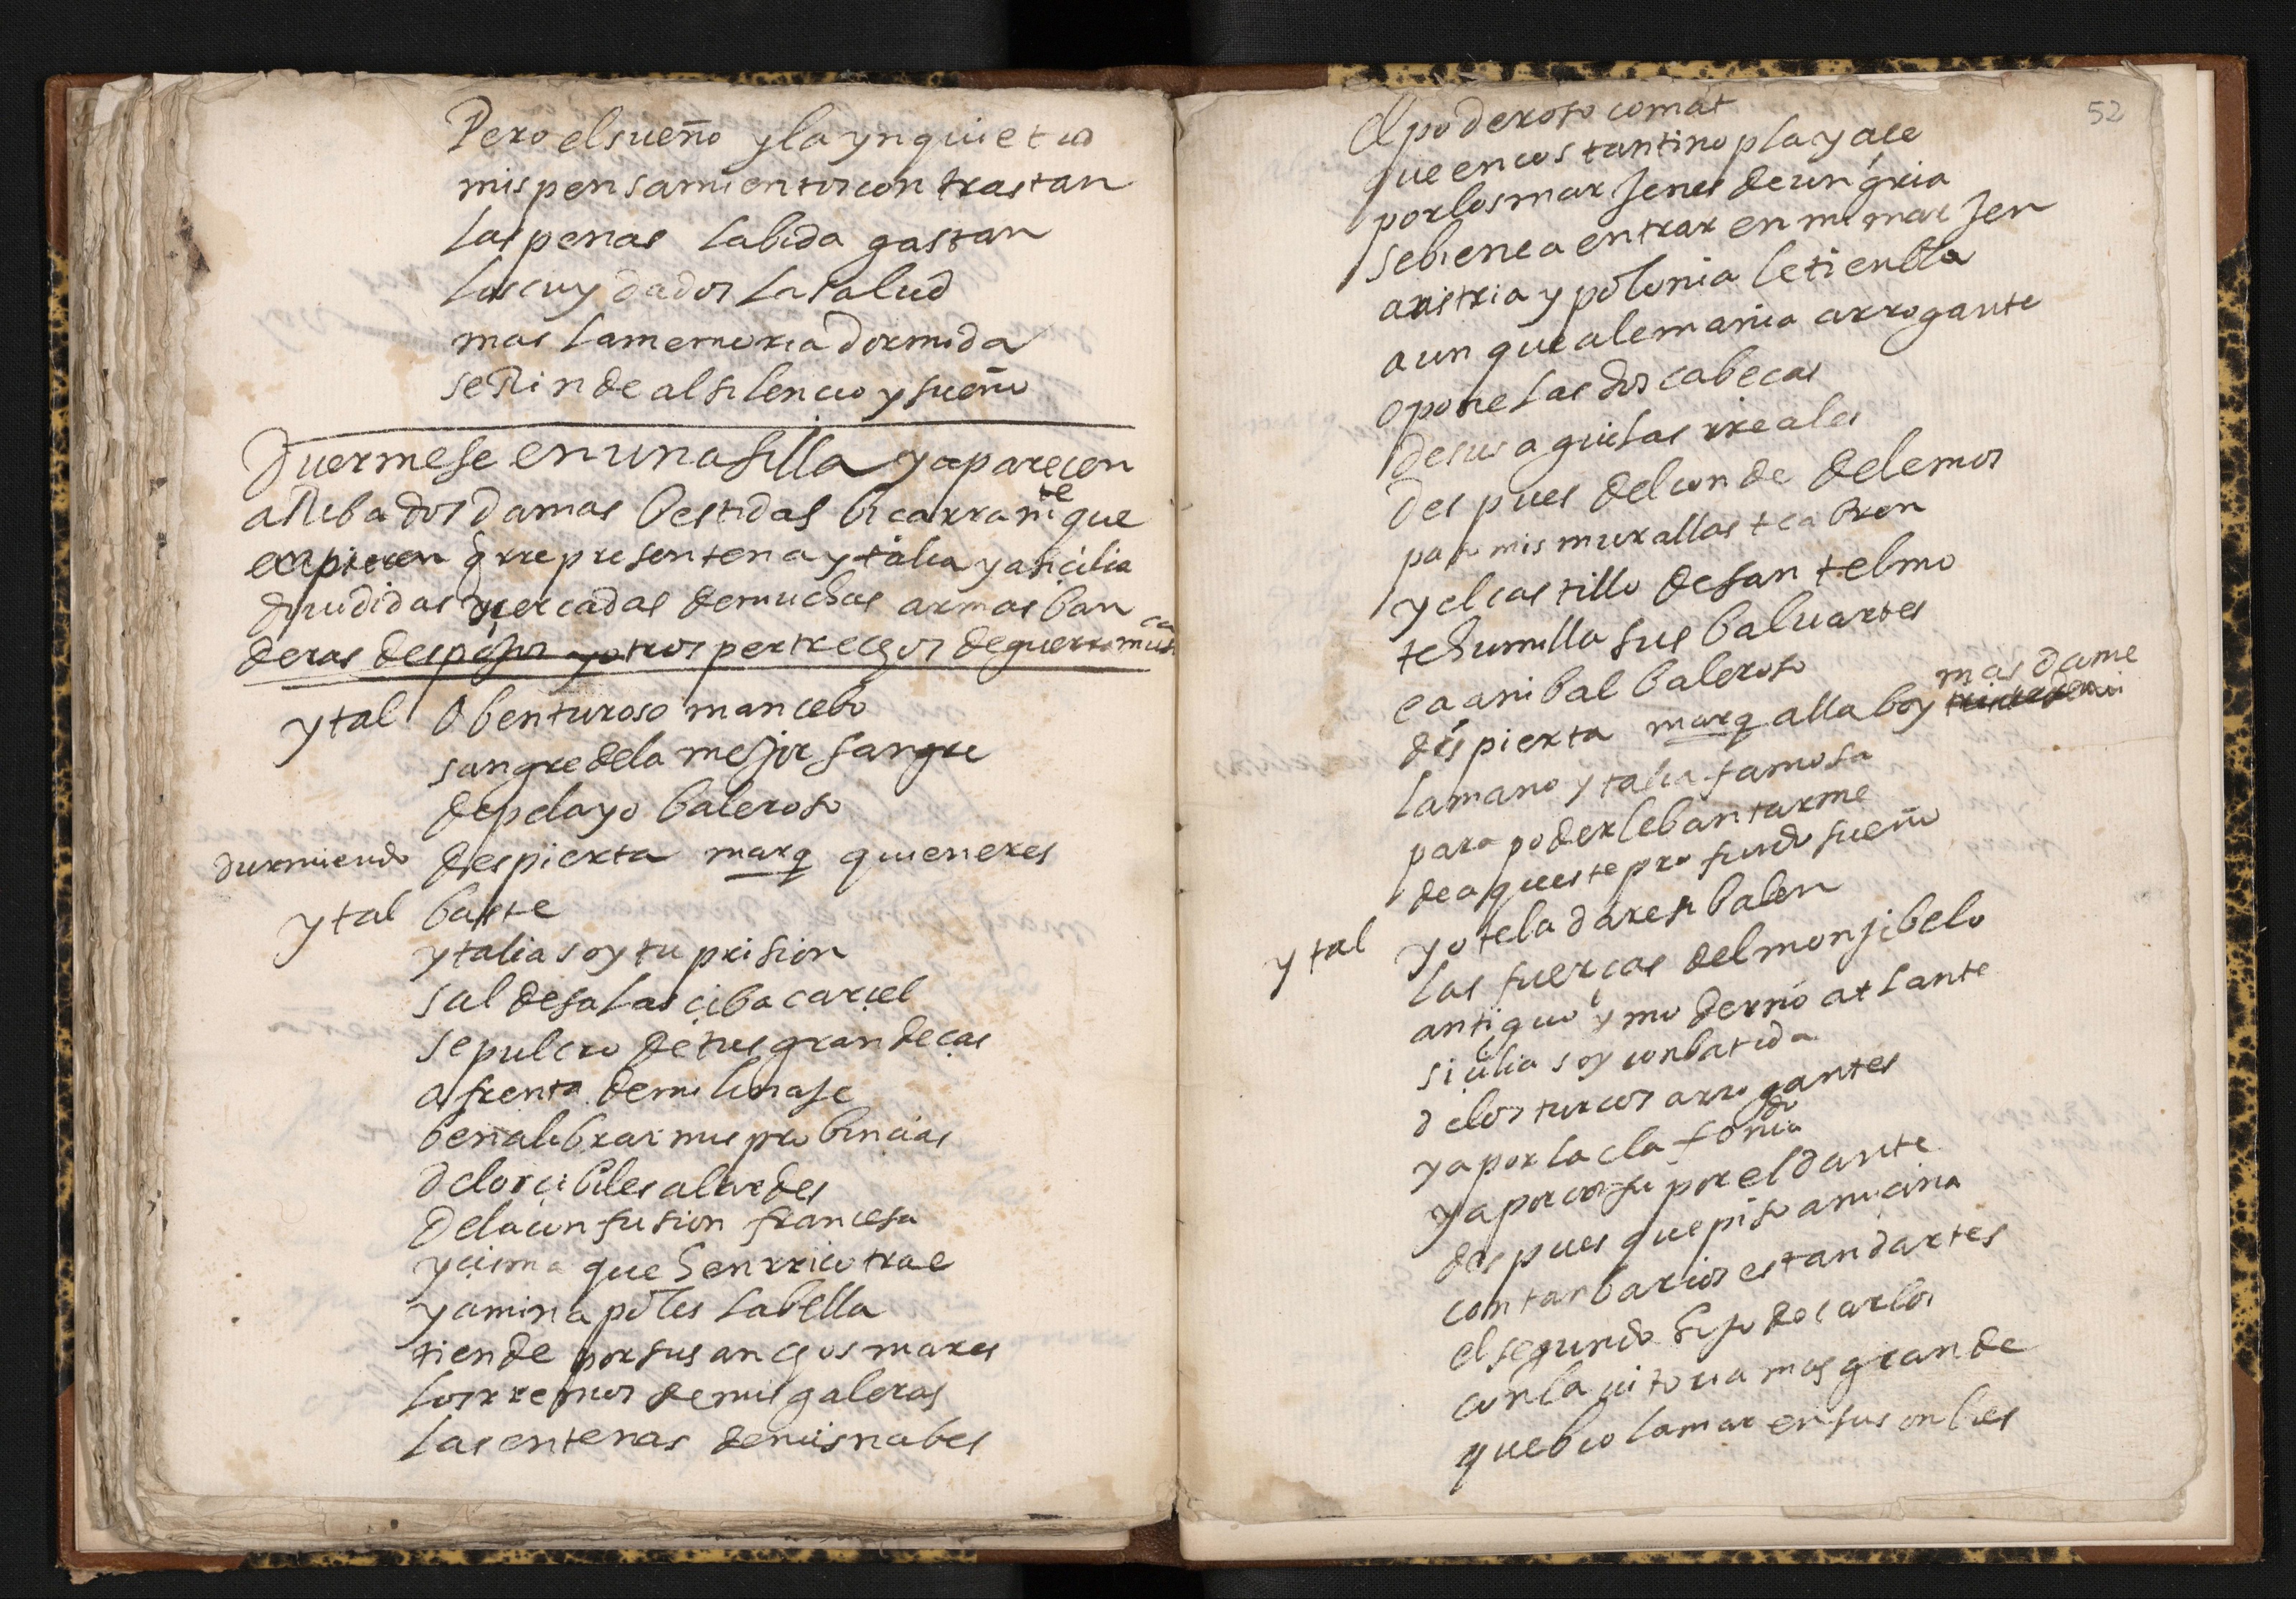 Pero el sueño y la ynquietud
mis pensamientos contrastan
las penas la bida gastan
los cuydados la salud
mas la memoria dormida
se Rinde al silencio y sueño
Duermese en una silla y aparecen
aRiba dos damas bestidas bicarramte que
 q rrepresenten a ytalia y a sicilia
diuididas y cercadas de muchas armas ban
deras despojos y otros pertrechos de guerra
ytal O benturoso mancebo
sangre de la mejor sangre
de pelayo baleroso
durmiendo despierta marq quien eres
ytal baste
ytalia soy tu prision
sal de sa lasciba carcel
sepulcro de tus grandeças
afrenta de mi linaje
ben a librar mis probincias
de los cibiles alardes
de la confusion francesa
y cisma que henrrico trae
y a mi napoles la bella
tiende por sus anchos mares
los rremos de mis galeras
las entenas de mis nabes
52
el poderoso comat
que en costantinopla yace
por los marjenes de ungria
se biene a entrar en mi marjen
austria y polonia le tienbla
aunque alemania arrogante
opone las dos cabeças
de sus aguilas rreales
despues del conde de lemos
 mis murallas te abren
y el castillo de san telmo
te humilla sus baluartes
ea anibal baleroso
despierta marq alla boy mas dame
la mano ytalia famosa
para poder lebantarme
de aqueste profundo sueño
ytal yo te la dare si balen
las fuerças del monjibelo
antiguo y moderno atlante
sicilia soy conbatida
de los turcos arrogantes
ya por la cla
ya por corfu por el dante
despues que piso a
con tan barios estandartes
el segundo hijo de carlos
con la vitoria mas grande
que bio la mar en sus onbros